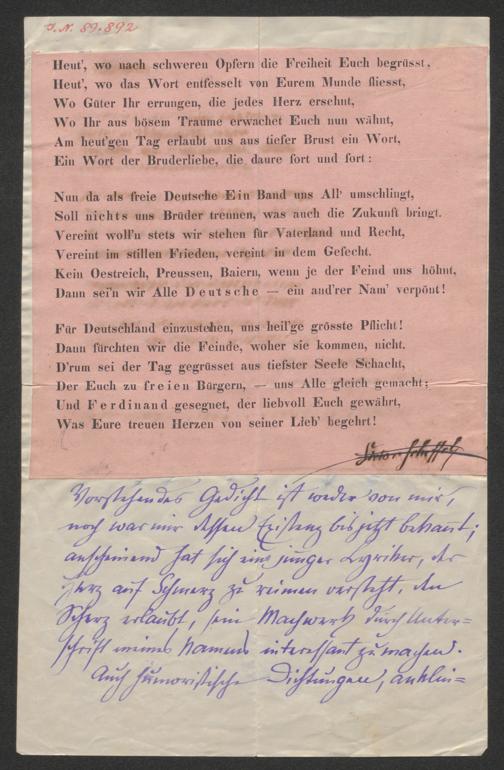 J.N. 89.892
Heut', wo nach schweren Opfern die Freiheit Euch begrüsst,
Heut', wo das Wort entfesselt von Eurem Munde fliesst,
Wo Güter Ihr errungen, die jedes Herz ersehnt,
Wo Ihr aus bösem Traume erwachet Euch nun wähnt,
Am heut'gen Tag erlaubt uns aus tiefer Brust ein Wort,
Ein Wort der Bruderliebe, die daure fort und fort:
Nun da als freie Deutsche Ein Band uns All' umschlingt,
Soll nichts uns Brüder trennen, was auch die Zukunft bringt.
Vereint woll'n stets wir stehen für Vaterland und Recht,
Vereint im stillen Frieden, vereint in dem Gefecht.
Kein Oestreich, Preussen, Baiern, wenn je der Feind uns höhnt,
Dann sei'n wir Alle Deutsche — ein and'rer Nam' verpönt!
Für Deutschland einzustehen, uns heil'ge grösste Pflicht!
Dann fürchten wir die Feinde, woher sie kommen, nicht.
D'rum sei der Tag gegrüsset aus tiefster Seele Schacht,
Der Euch zu freien Bürgern, — uns Alle gleich gemacht;
Und Ferdinand gesegnet, der liebvoll Euch gewährt,
Was Eure treuen Herzen von seiner Lieb' begehrt!
Vorstehendes Gedicht ist weder von mir,
noch war mir dessen Existenz bis jetzt bekannt;
anscheinend hat sich ein junger Lyriker, der
Herz auf Schmerz zu reimen versteht, den
Scherz erlaubt, sein Machwerk durch Unter=
schrift meines Namens interessant zu machen.
Auch humoristische Dichtungen, anklin=